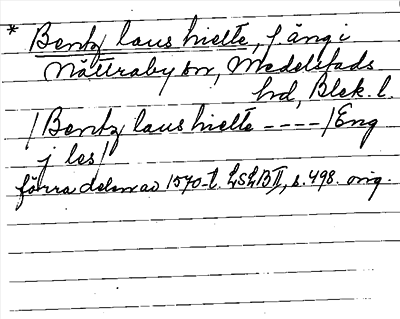 * Bentz laus hiette, f äng i
Nättraby sn, Medelstads
hd, Blek. l.
/Bentz laus hiette ---- /Eng
j les/
förra delen av 1570-t. LSLB II, s. 498. orig.